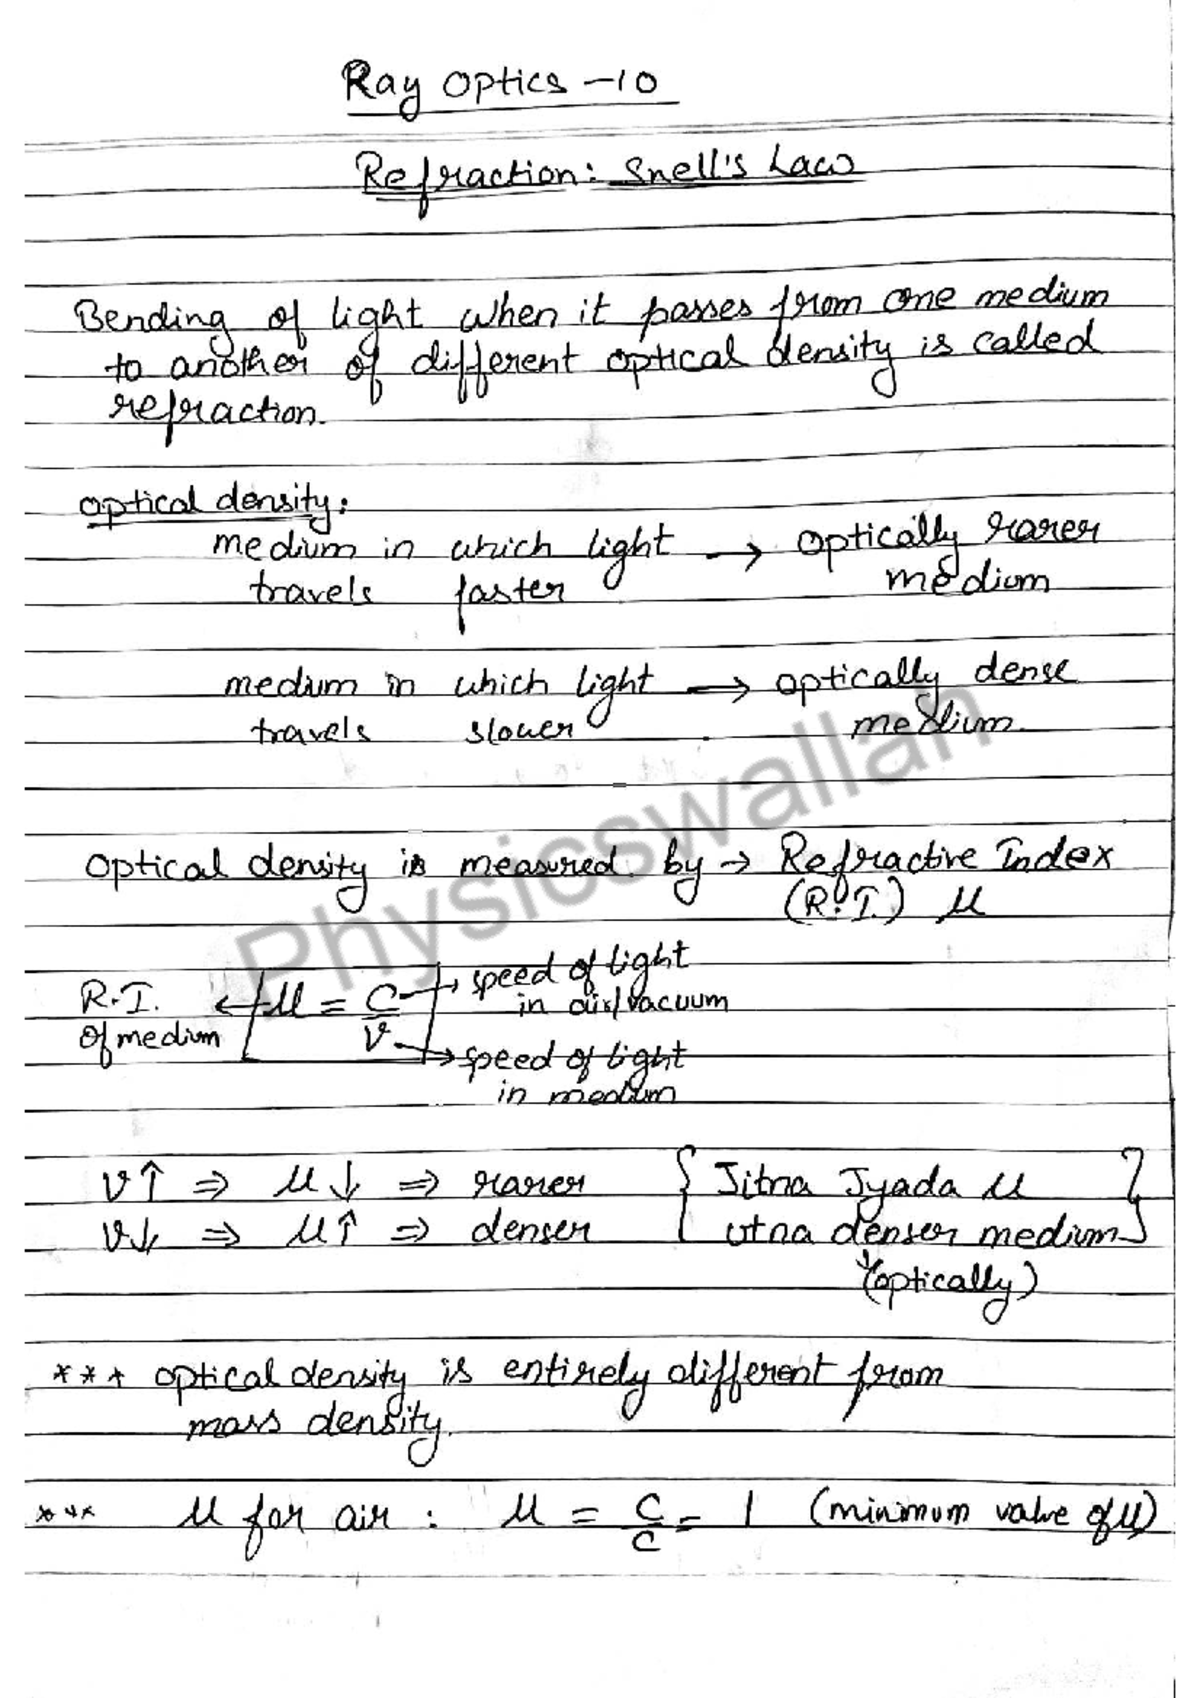 Ray Optics -10
Refraction: Snell's Law
Bending of light when it passes from one medium
to another of different optical density is called
refraction.
optical density:
medium in which light → optically rarer
travels faster medium
medium in which light → optically dense
travels slower medium
Optical density is measured by → Refractive Index
(R.I.) μ
R.I. of medium ← μ = C/v
C → speed of light in air/vacuum
v → speed of light in medium
v↑ ⇒ μ↓ ⇒ rarer { Jitna Jyada μ }
v↓ ⇒ μ↑ ⇒ denser { utna denser medium }
(optically)
*** optical density is entirely different from
mass density.
*** μ for air : μ = C/C = 1 (minimum value of μ)
Physicswallah